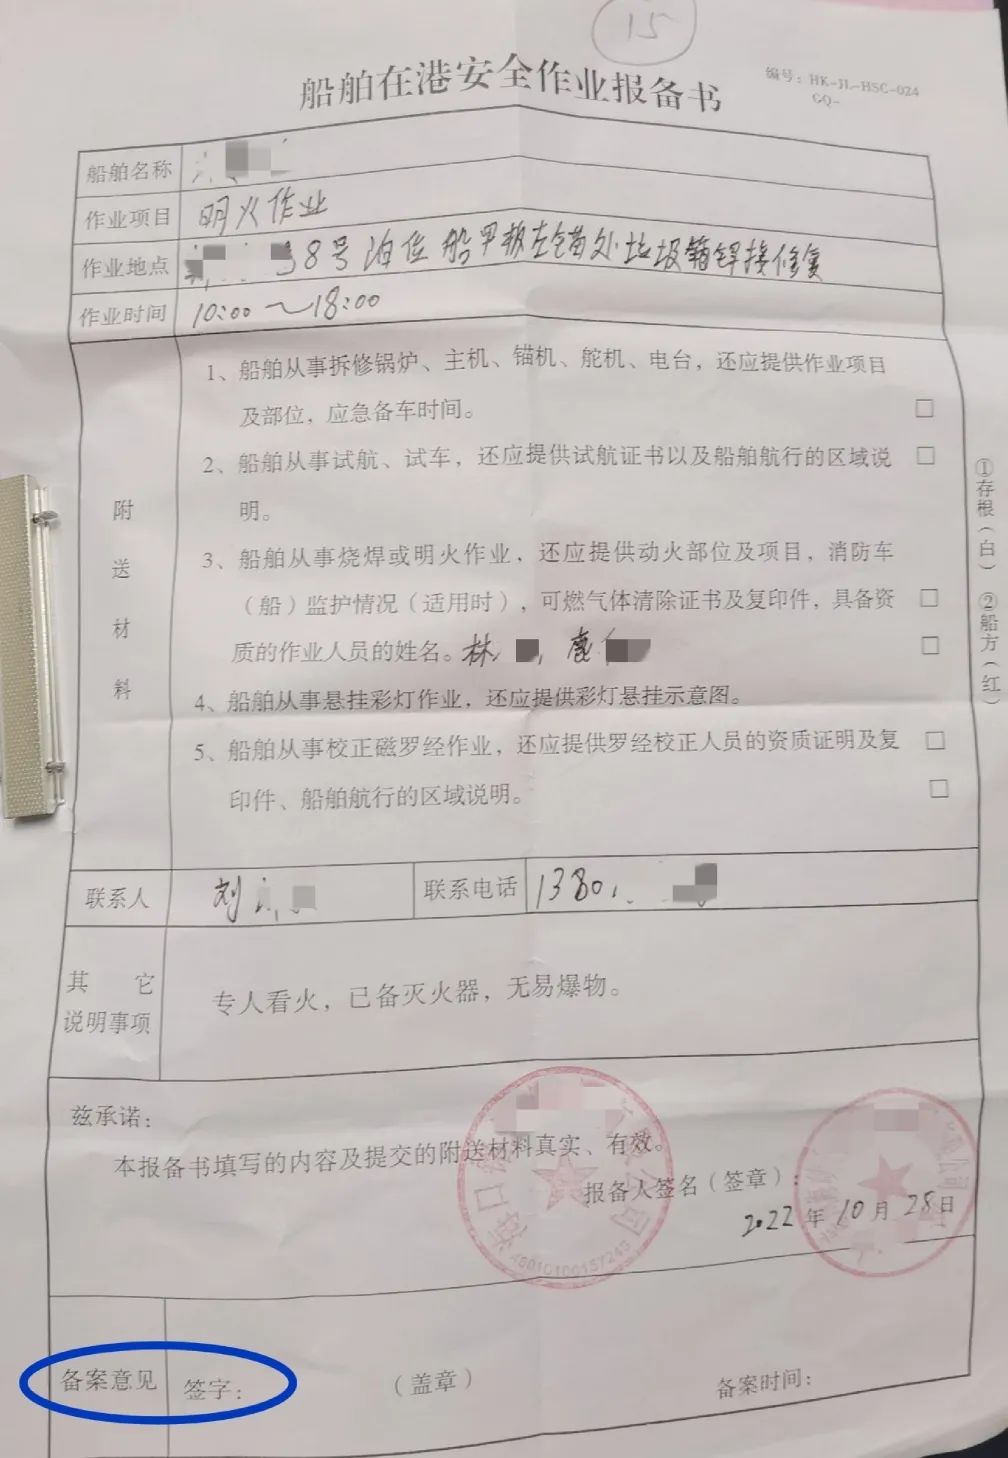 15
船舶在港安全作业报备书
编号：HK-JL-HSC-024
GQ-
船舶名称
作业项目 明火作业
作业地点 38号泊位船甲板左锚处垃圾箱焊接修复
作业时间 10:00～18:00
附送材料
1、船舶从事拆修锅炉、主机、锚机、舵机、电台，还应提供作业项目
及部位，应急备车时间。 □
2、船舶从事试航、试车，还应提供试航证书以及船舶航行的区域说 □
明。
3、船舶从事烧焊或明火作业，还应提供动火部位及项目，消防车
（船）监护情况（适用时），可燃气体清除证书及复印件，具备资 □
质的作业人员的姓名。林 □
4、船舶从事悬挂彩灯作业，还应提供彩灯悬挂示意图。
5、船舶从事校正磁罗经作业，还应提供罗经校正人员的资质证明及复 □
印件、船舶航行的区域说明。 □
①存根（白） ②船方（红）
联系人 刘 联系电话 1380
其它
说明事项
专人看火，已备灭火器，无易爆物。
兹承诺：
本报备书填写的内容及提交的附送材料真实、有效。
报备人签名（签章）：
2022年10月28日
备案意见 签字： （盖章） 备案时间：